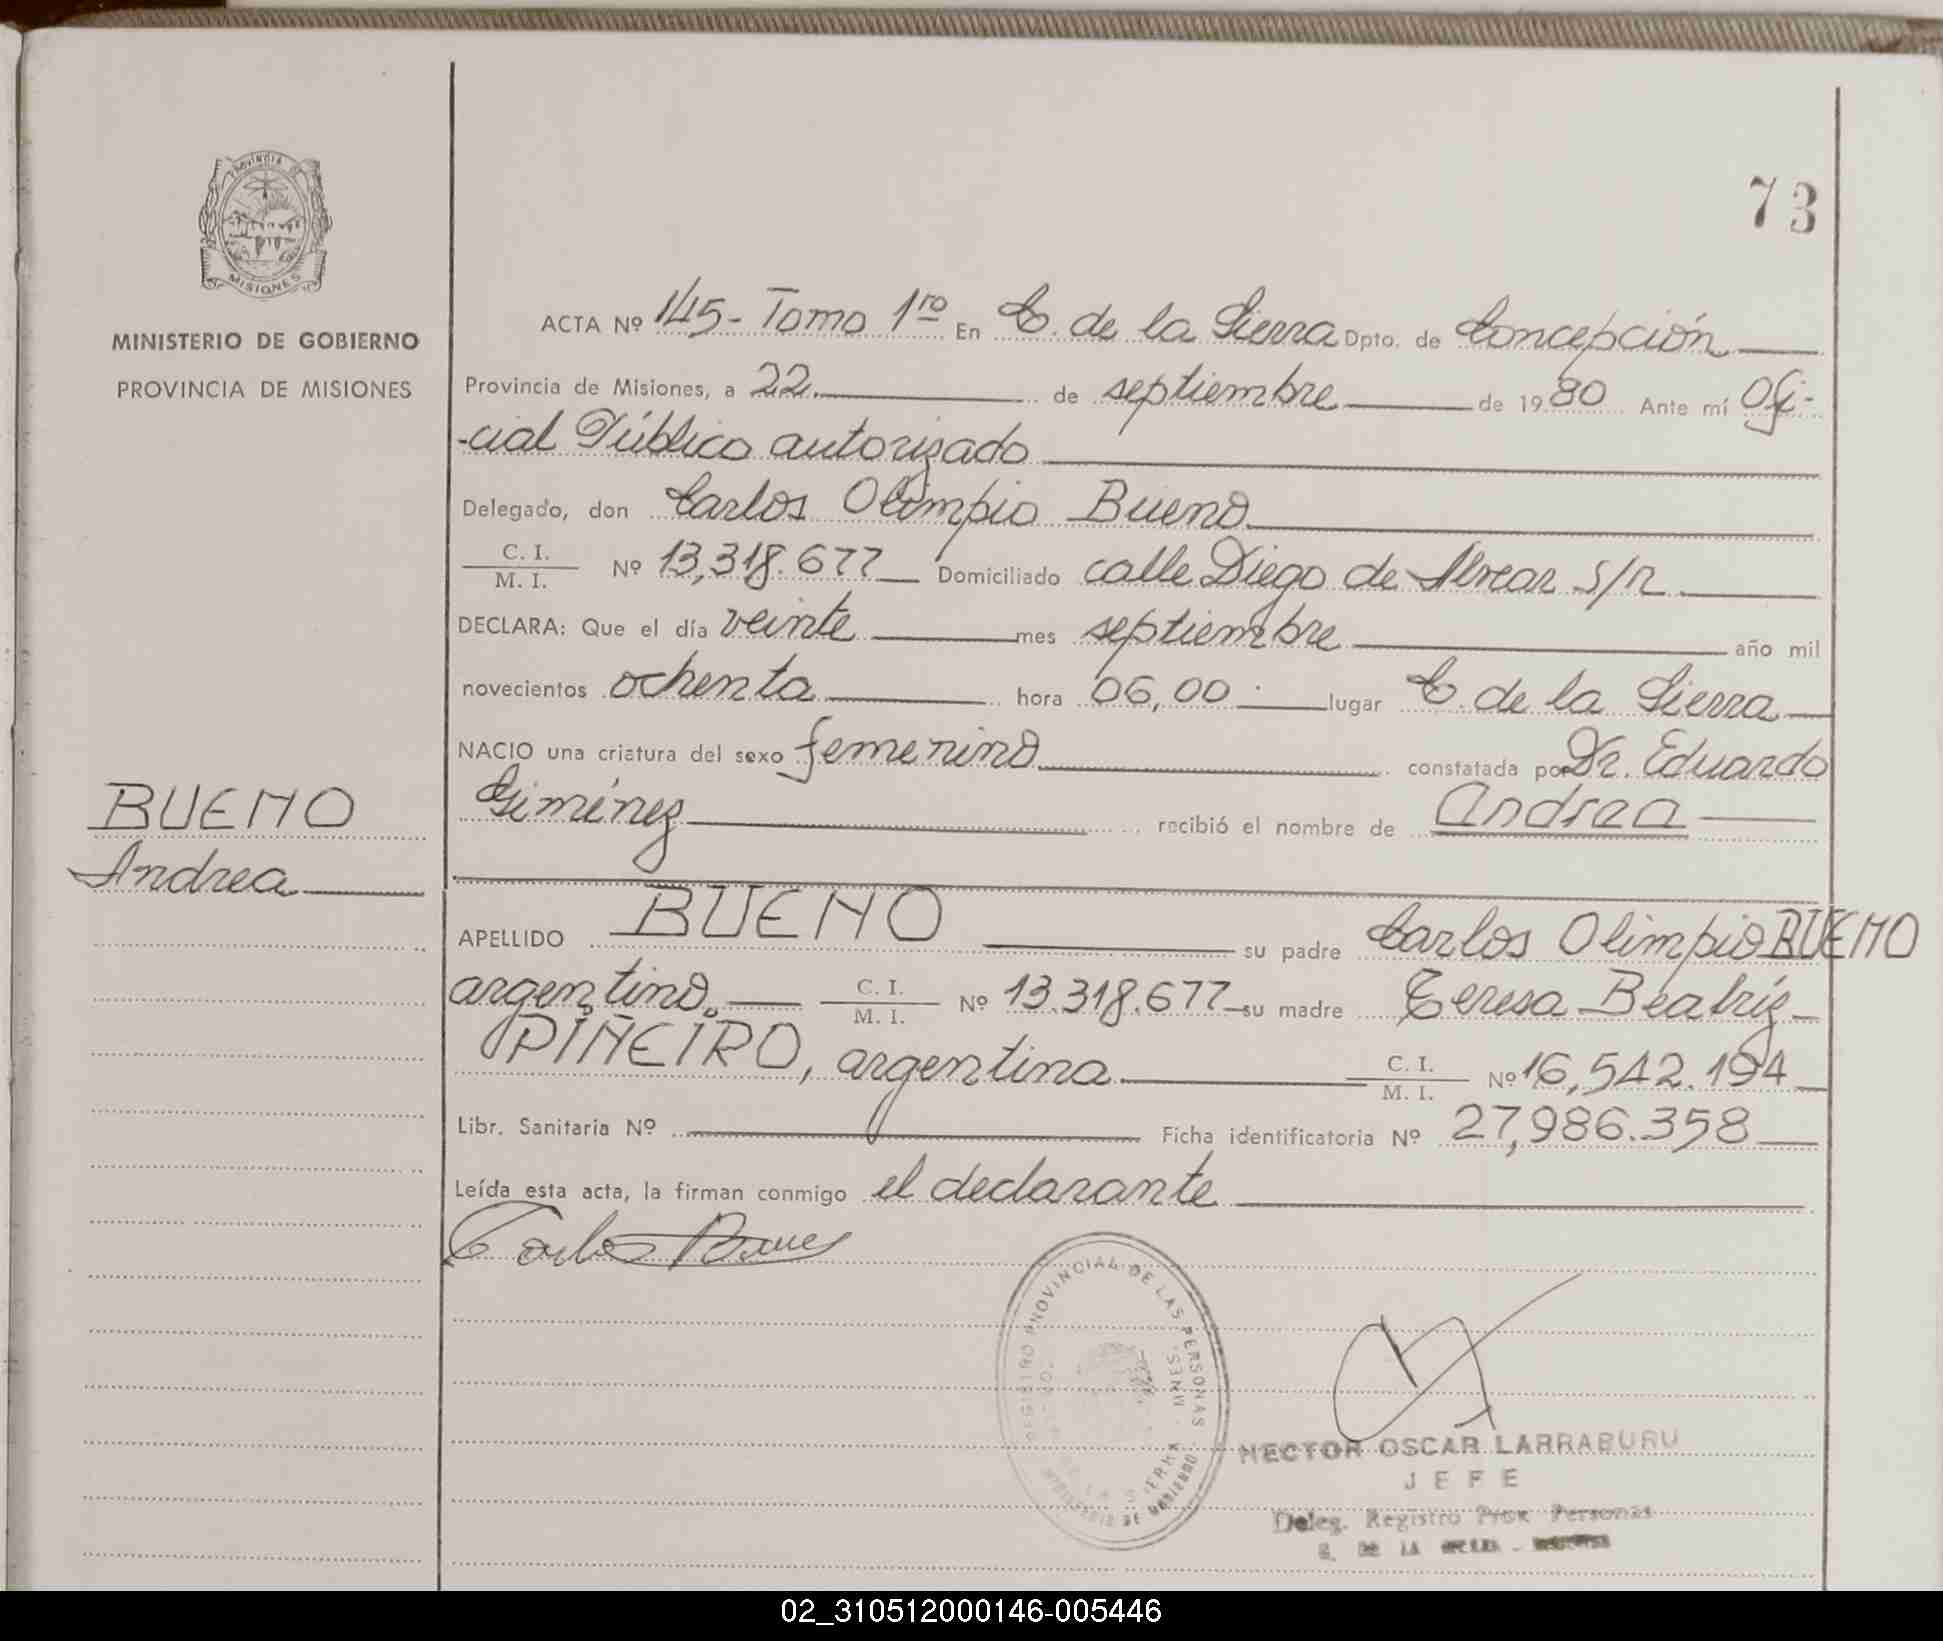 73
PROVINCIA DE
MISIONES
MINISTERIO DE GOBIERNO
PROVINCIA DE MISIONES
ACTA Nº 145- Tomo 1ro En C. de la Sierra Dpto. de Concepción
Provincia de Misiones, a 22 de septiembre de 1980 Ante mí Ofi-
-cial Público autorizado
Delegado, don Carlos Olimpio Bueno
C. I. / M. I. Nº 13,318.677 Domiciliado calle Diego de Alvear s/n
DECLARA: Que el día veinte mes septiembre año mil
novecientos ochenta hora 06,00 lugar C. de la Sierra
NACIO una criatura del sexo femenino constatada por Dr. Eduardo
Giménez recibió el nombre de Andrea
BUENO
Andrea
APELLIDO BUENO su padre Carlos Olimpio BUENO
argentino. C. I. / M. I. Nº 13.318.677 su madre Teresa Beatríz
PIÑEIRO, argentina C. I. / M. I. Nº 16,542.194
Libr. Sanitaria Nº Ficha identificatoria Nº 27,986.358
Leída esta acta, la firman conmigo el declarante
Carlos Bueno
REGISTRO PROVINCIAL DE LAS PERSONAS
MINISTERIO DE GOBIERNO
SIERRA - MNES.
HECTOR OSCAR LARRABURU
JEFE
Deleg. Registro Prov. Personas
DE LA
02_310512000146-005446